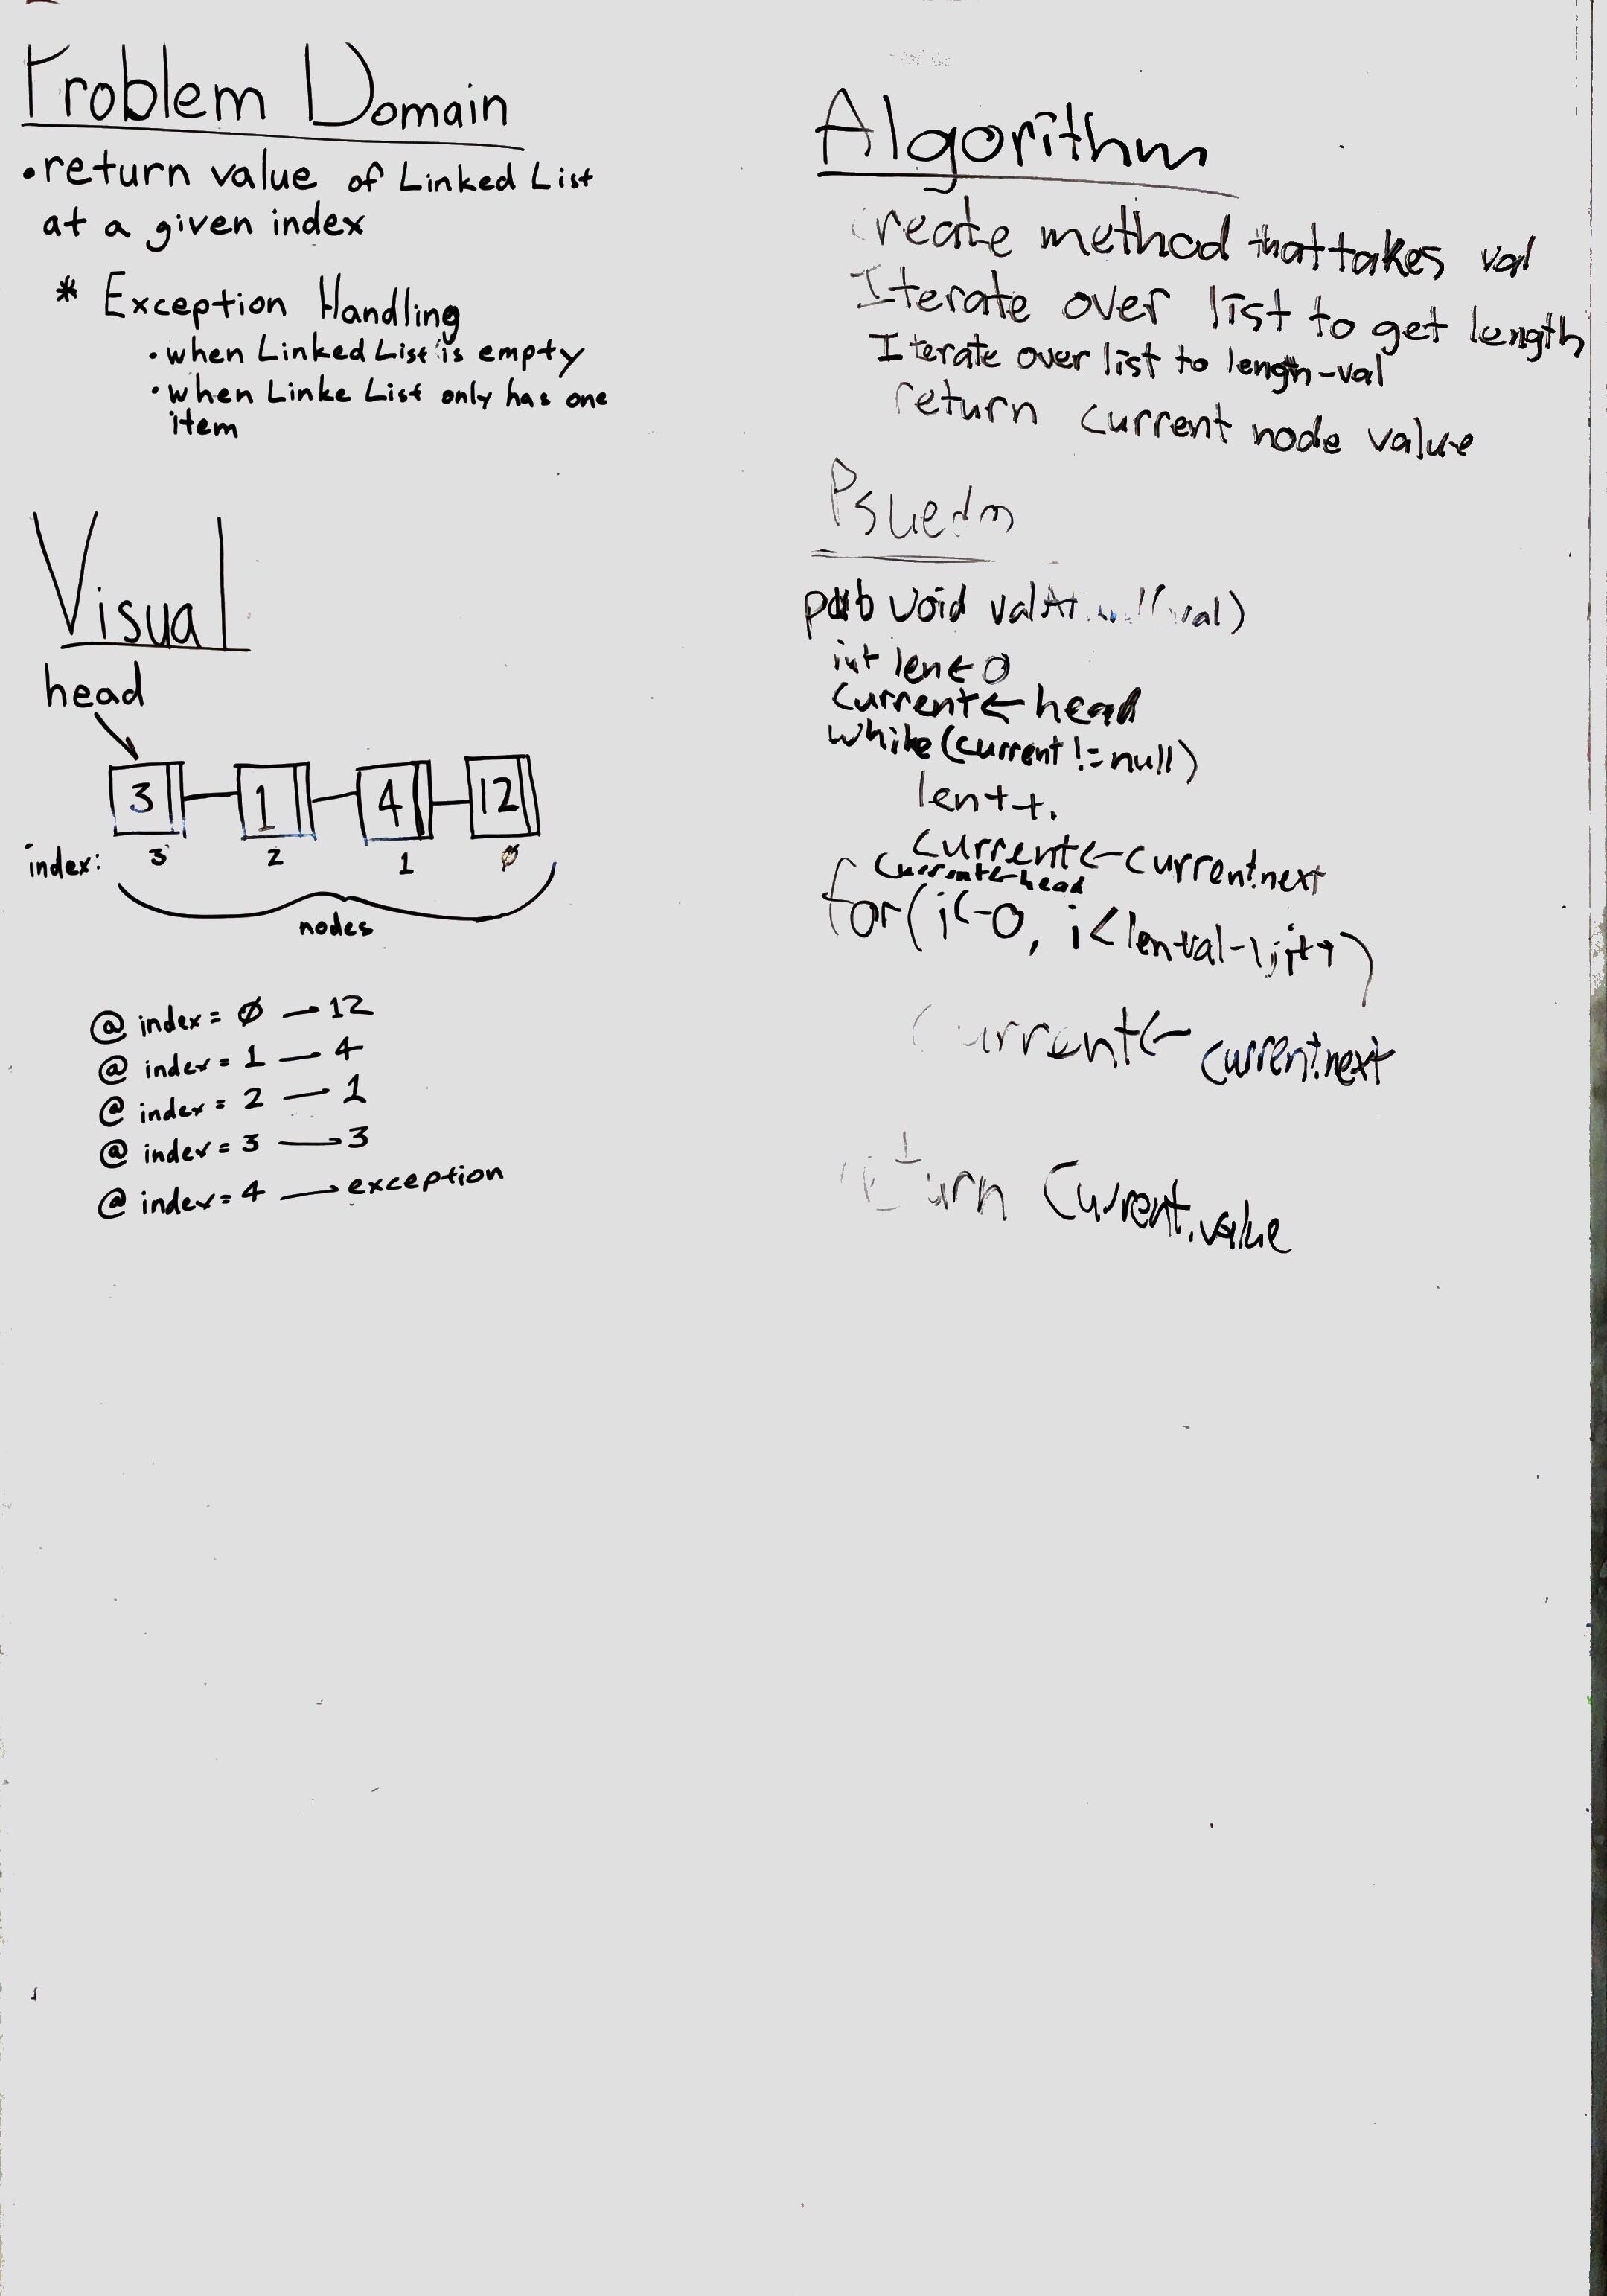 Problem Domain
• return value of Linked List
at a given index
* Exception Handling
• when Linked List is empty
• when Linke List only has one
item
Visual
head
3 1 4 12
index: 3 2 1 0
nodes
@ index = 0 — 12
@ index = 1 — 4
@ index = 2 — 1
@ index = 3 — 3
@ index = 4 — exception
Algorithm
Create method that takes val
Iterate over list to get length
Iterate over list to length-val
return current node value
Psuedo
pub void val)
int len ← 0
current ← head
while (current != null)
len++.
current ← current.next
current ← head
for (i ← 0, i < len-val-1; i++)
current ← current.next
return current.value